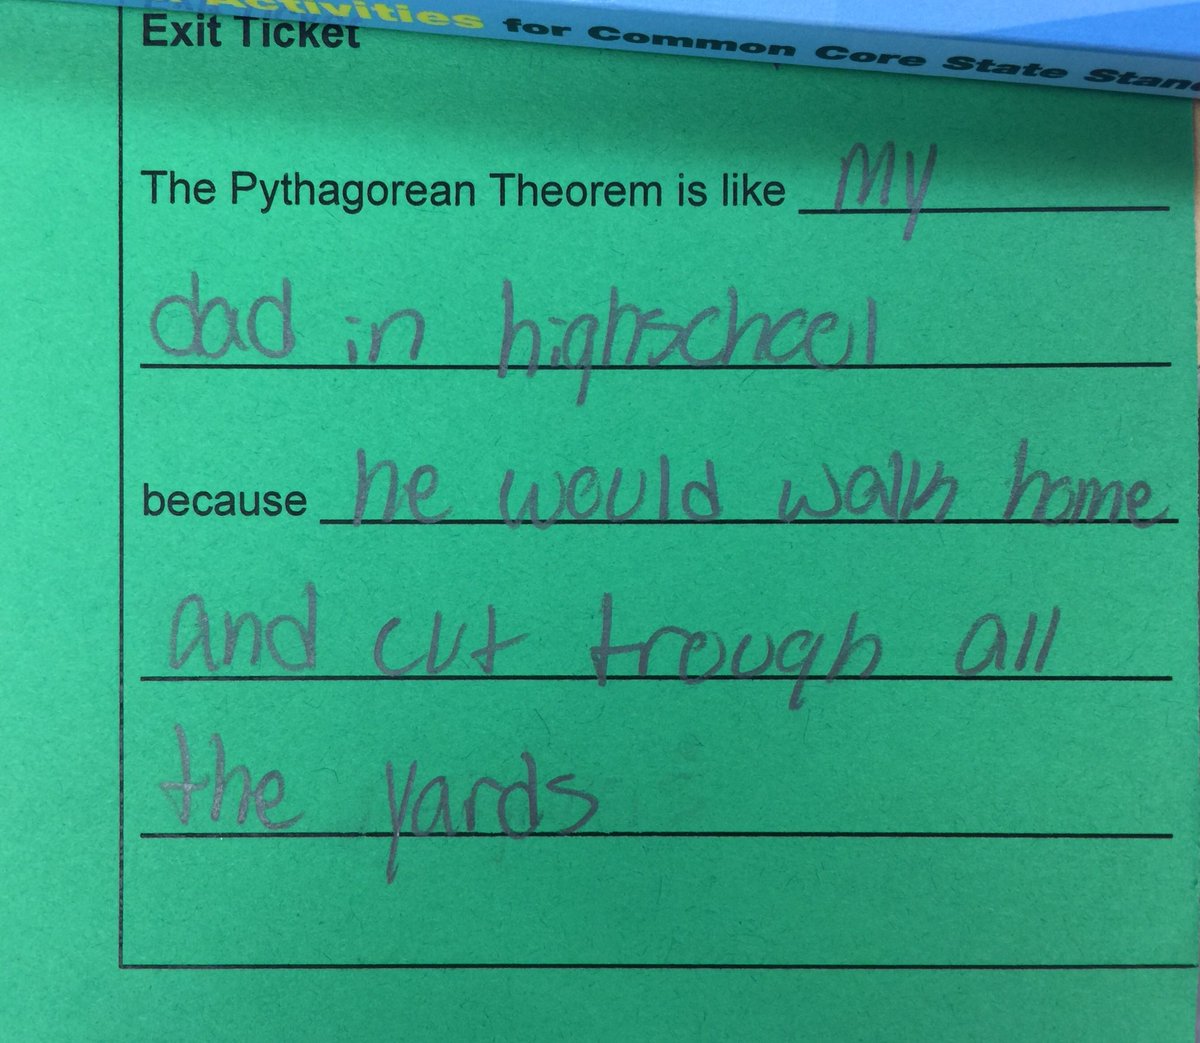 Activities for Common Core State Stan
Exit Ticket
The Pythagorean Theorem is like my
dad in highschool
because he would walk home
and cut trough all
the yards